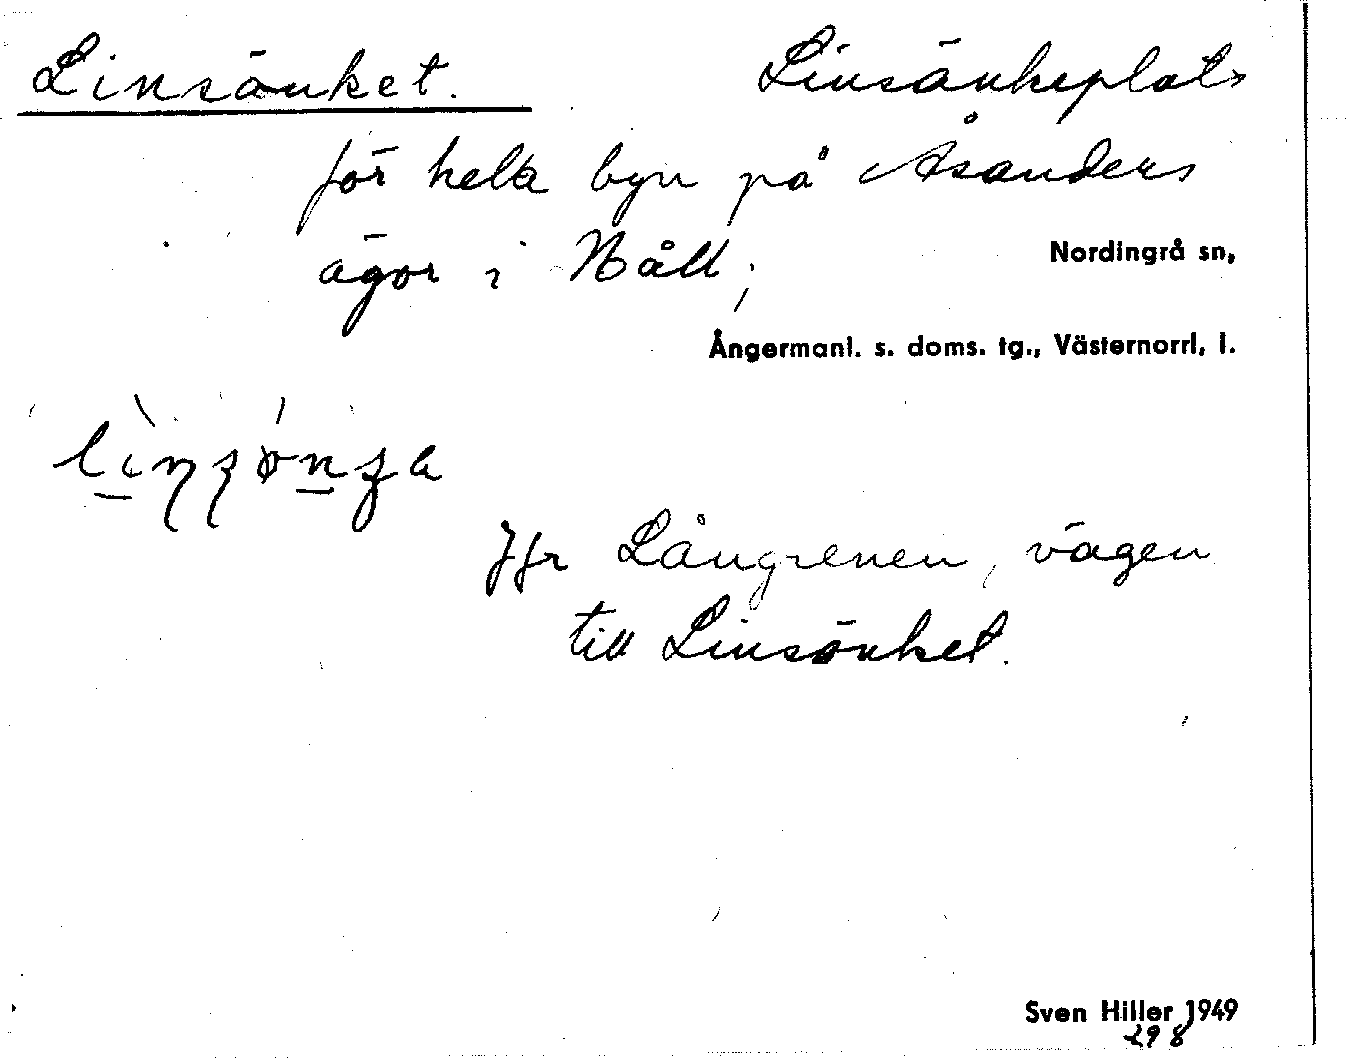 Linsänket. Linsänkeplats
för hela byn på Åsanders
ägor i Håll;
Nordingrå sn,
Ångermanl. s. doms. tg., Västernorrl. l.
Jfr Långrenen, vägen
till Linsänket.
Sven Hiller 1949
298